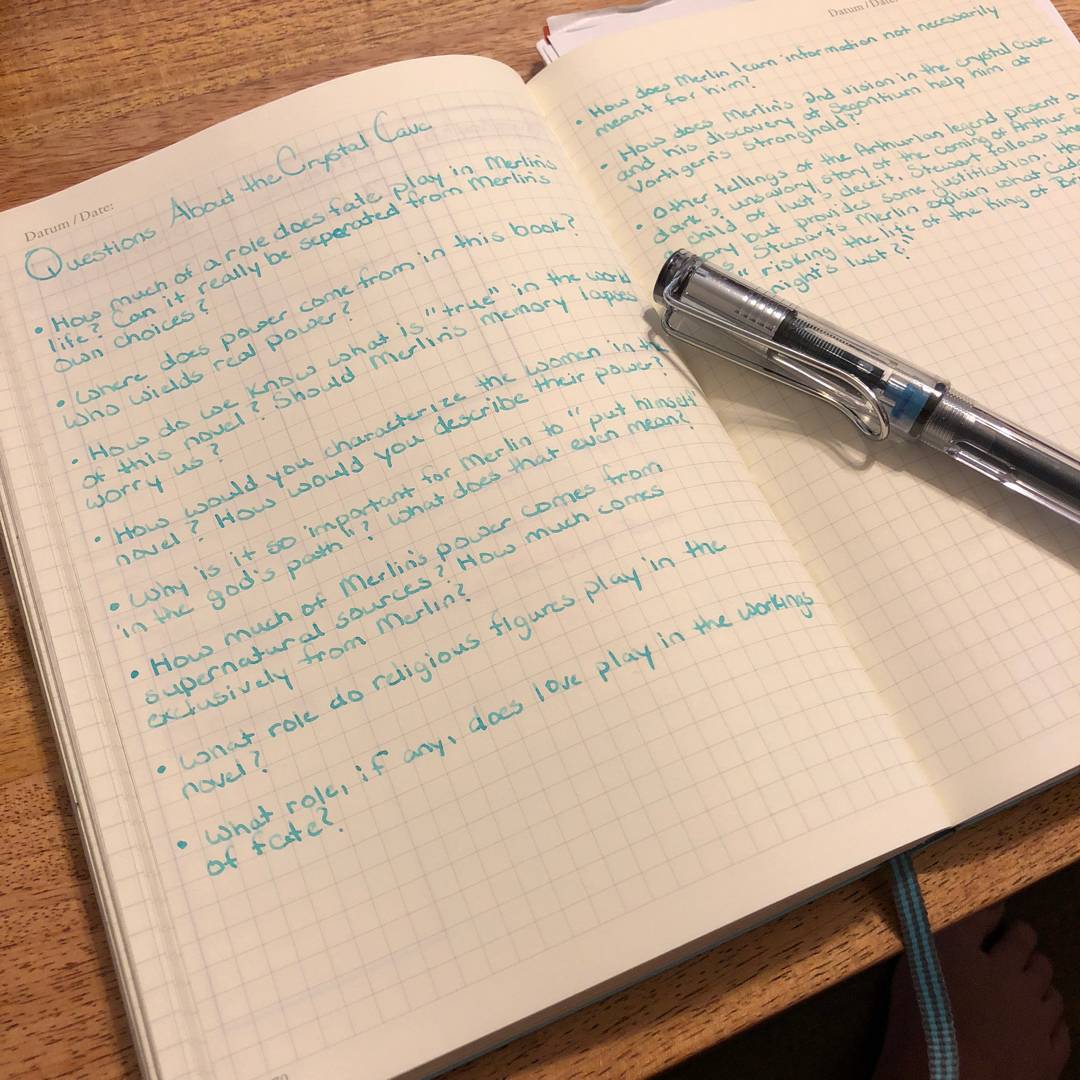 Datum / Date:
Questions About the Crystal Cave
• How much of a role does fate play in Merlin's
life? Can it really be seperated from Merlin's
own choices?
• Where does power come from in this book?
Who wields real power?
• How do we know what is "true" in the world
of this novel? Should Merlin's memory lapses
worry us?
• How would you characterize the women in the
novel? How would you describe their power?
• Why is it so important for Merlin to "put himself
in the god's path"? What does that even mean?
• How much of Merlin's power comes from
supernatural sources? How much comes
exclusively from Merlin?
• What role do religious figures play in the
novel?
• What role, if any, does love play in the workings
of fate?
Datum / Date:
• How does Merlin learn information not necessarily
meant for him?
• How does Merlin's 2nd vision in the crystal cave
and his discovery at Segontium help him at
Vortigern's stronghold?
• Other tellings of the Arthurian legend present a
dark, unsavory story of the coming of Arthur,
child of lust & deceit. Stewart follows the
but provides some justification. How
Stewart's Merlin explain what Cad
"risking the life of the king of Bri
night's lust?"